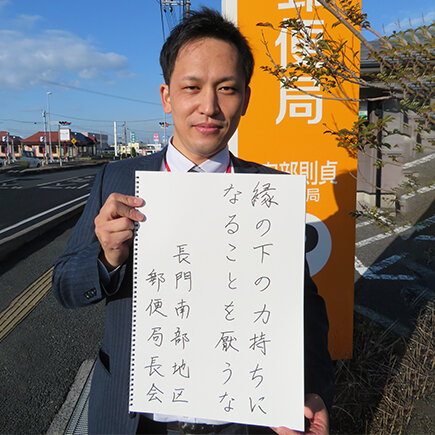 縁の下の力持ちに
なることを厭うな
長門南部地区
郵便局長会
便局
部則貞
局